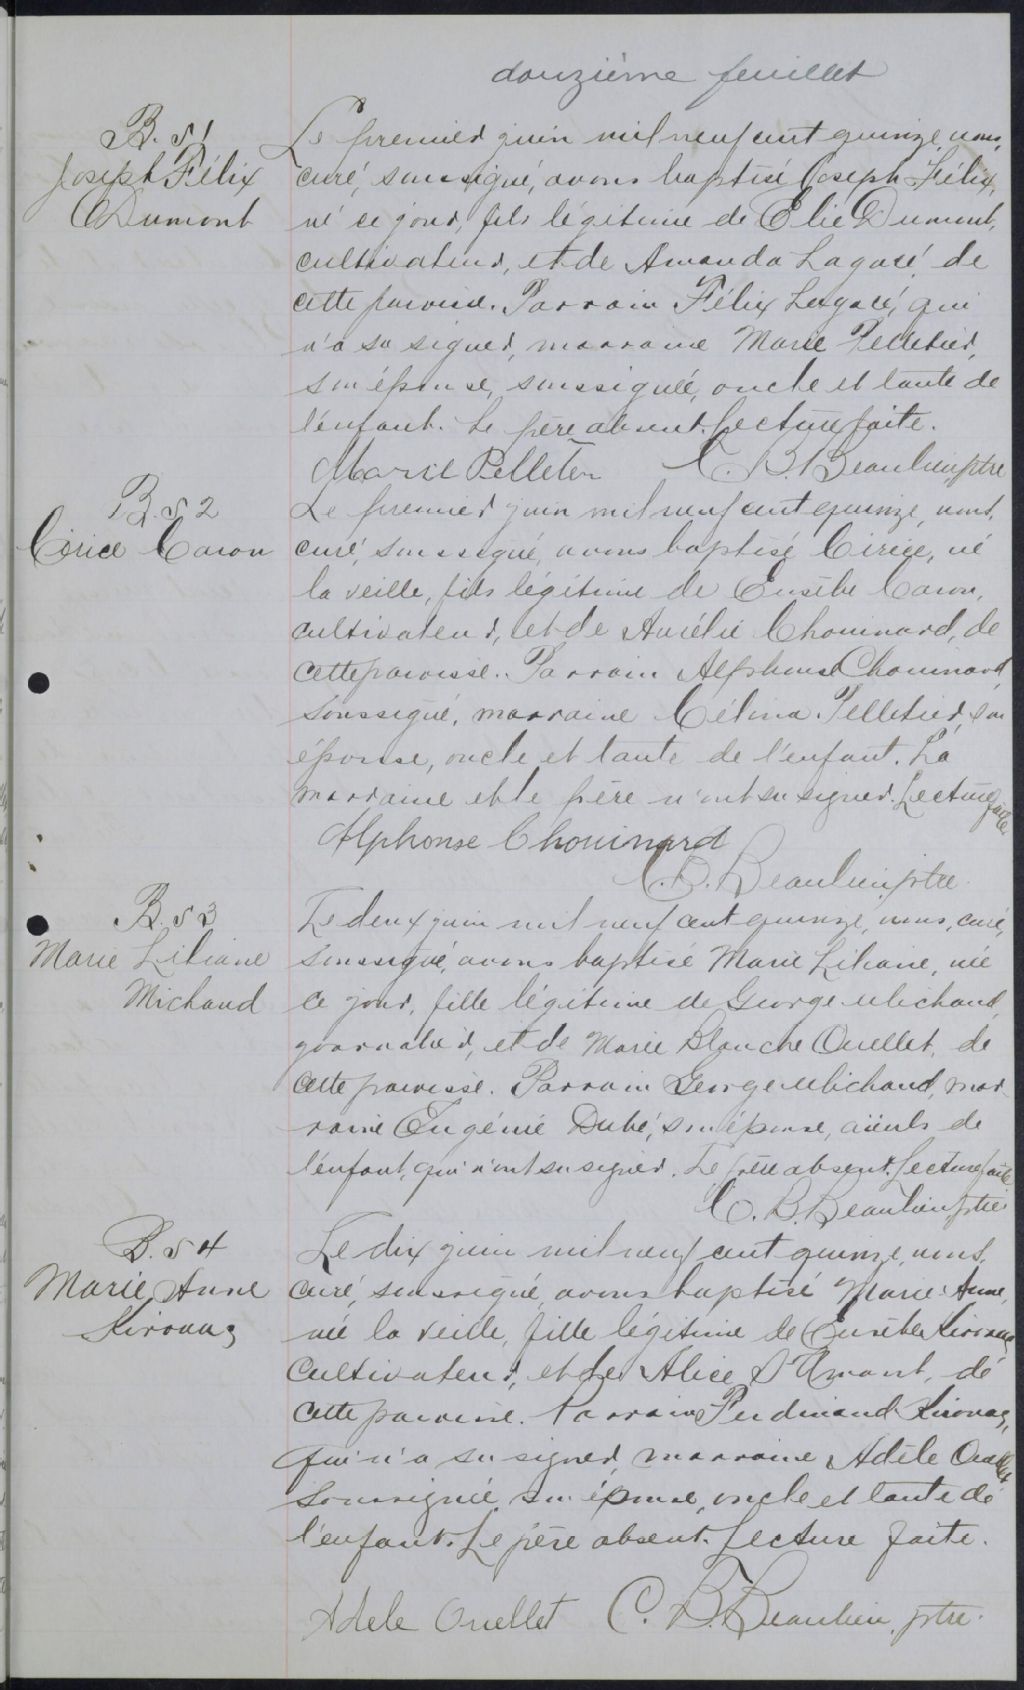 douzième feuillet
B. 51
Joseph Félix
Dumont
Le premier juin mil neuf cent quinze, nous,
curé, soussigné, avons baptisé Joseph Félix,
né ce jour, fils légitime de Elie Dumont,
cultivateur, et de Amanda Lagacé, de
cette paroisse. Parrain Félix Lagacé, qui
n'a su signer, marraine Marie Pelletier,
son épouse, soussignée, oncle et tante de
l'enfant. Le père absent. Lecture faite.
Marie Pelletier C. B. Beaulieu, ptre
B. 52
Cirice Caron
Le premier juin mil neuf cent quinze, nous,
curé, soussigné, avons baptisé Cirice, né
la veille, fils légitime de Eusèbe Caron,
cultivateur, et de Aurélie Chouinard, de
cette paroisse. Parrain Alphonse Chouinard,
soussigné, marraine Célina Pelletier, son
épouse, oncle et tante de l'enfant. La
marraine et le père n'ont su signer. Lecture faite
Alphonse Chouinard
C. B. Beaulieu, ptre.
B. 53
Marie Liliane
Michaud
Le deux juin mil neuf cent quinze, nous, curé,
soussigné, avons baptisé Marie Liliane, née
ce jour, fille légitime de George Michaud,
journalier, et de Marie Blanche Ouellet, de
cette paroisse. Parrain George Michaud, mar-
raine Eugénie Dubé, son épouse, aïeuls de
l'enfant, qui n'ont su signer. Le père absent. Lecture faite
C. B. Beaulieu, ptre
B. 54
Marie Anne
Kirouac
Le dix juin mil neuf cent quinze, nous,
curé, soussigné, avons baptisé Marie Anne,
née la veille, fille légitime de Eusèbe Kirouac
cultivateur, et de Alice St Amant, de
cette paroisse. Parrain Ferdinand Kirouac,
qui n'a su signer, marraine Adèle Ouellet
soussignée, son épouse, oncle et tante de
l'enfant. Le père absent. Lecture faite.
Adele Ouellet C. B. Beaulieu, ptre.